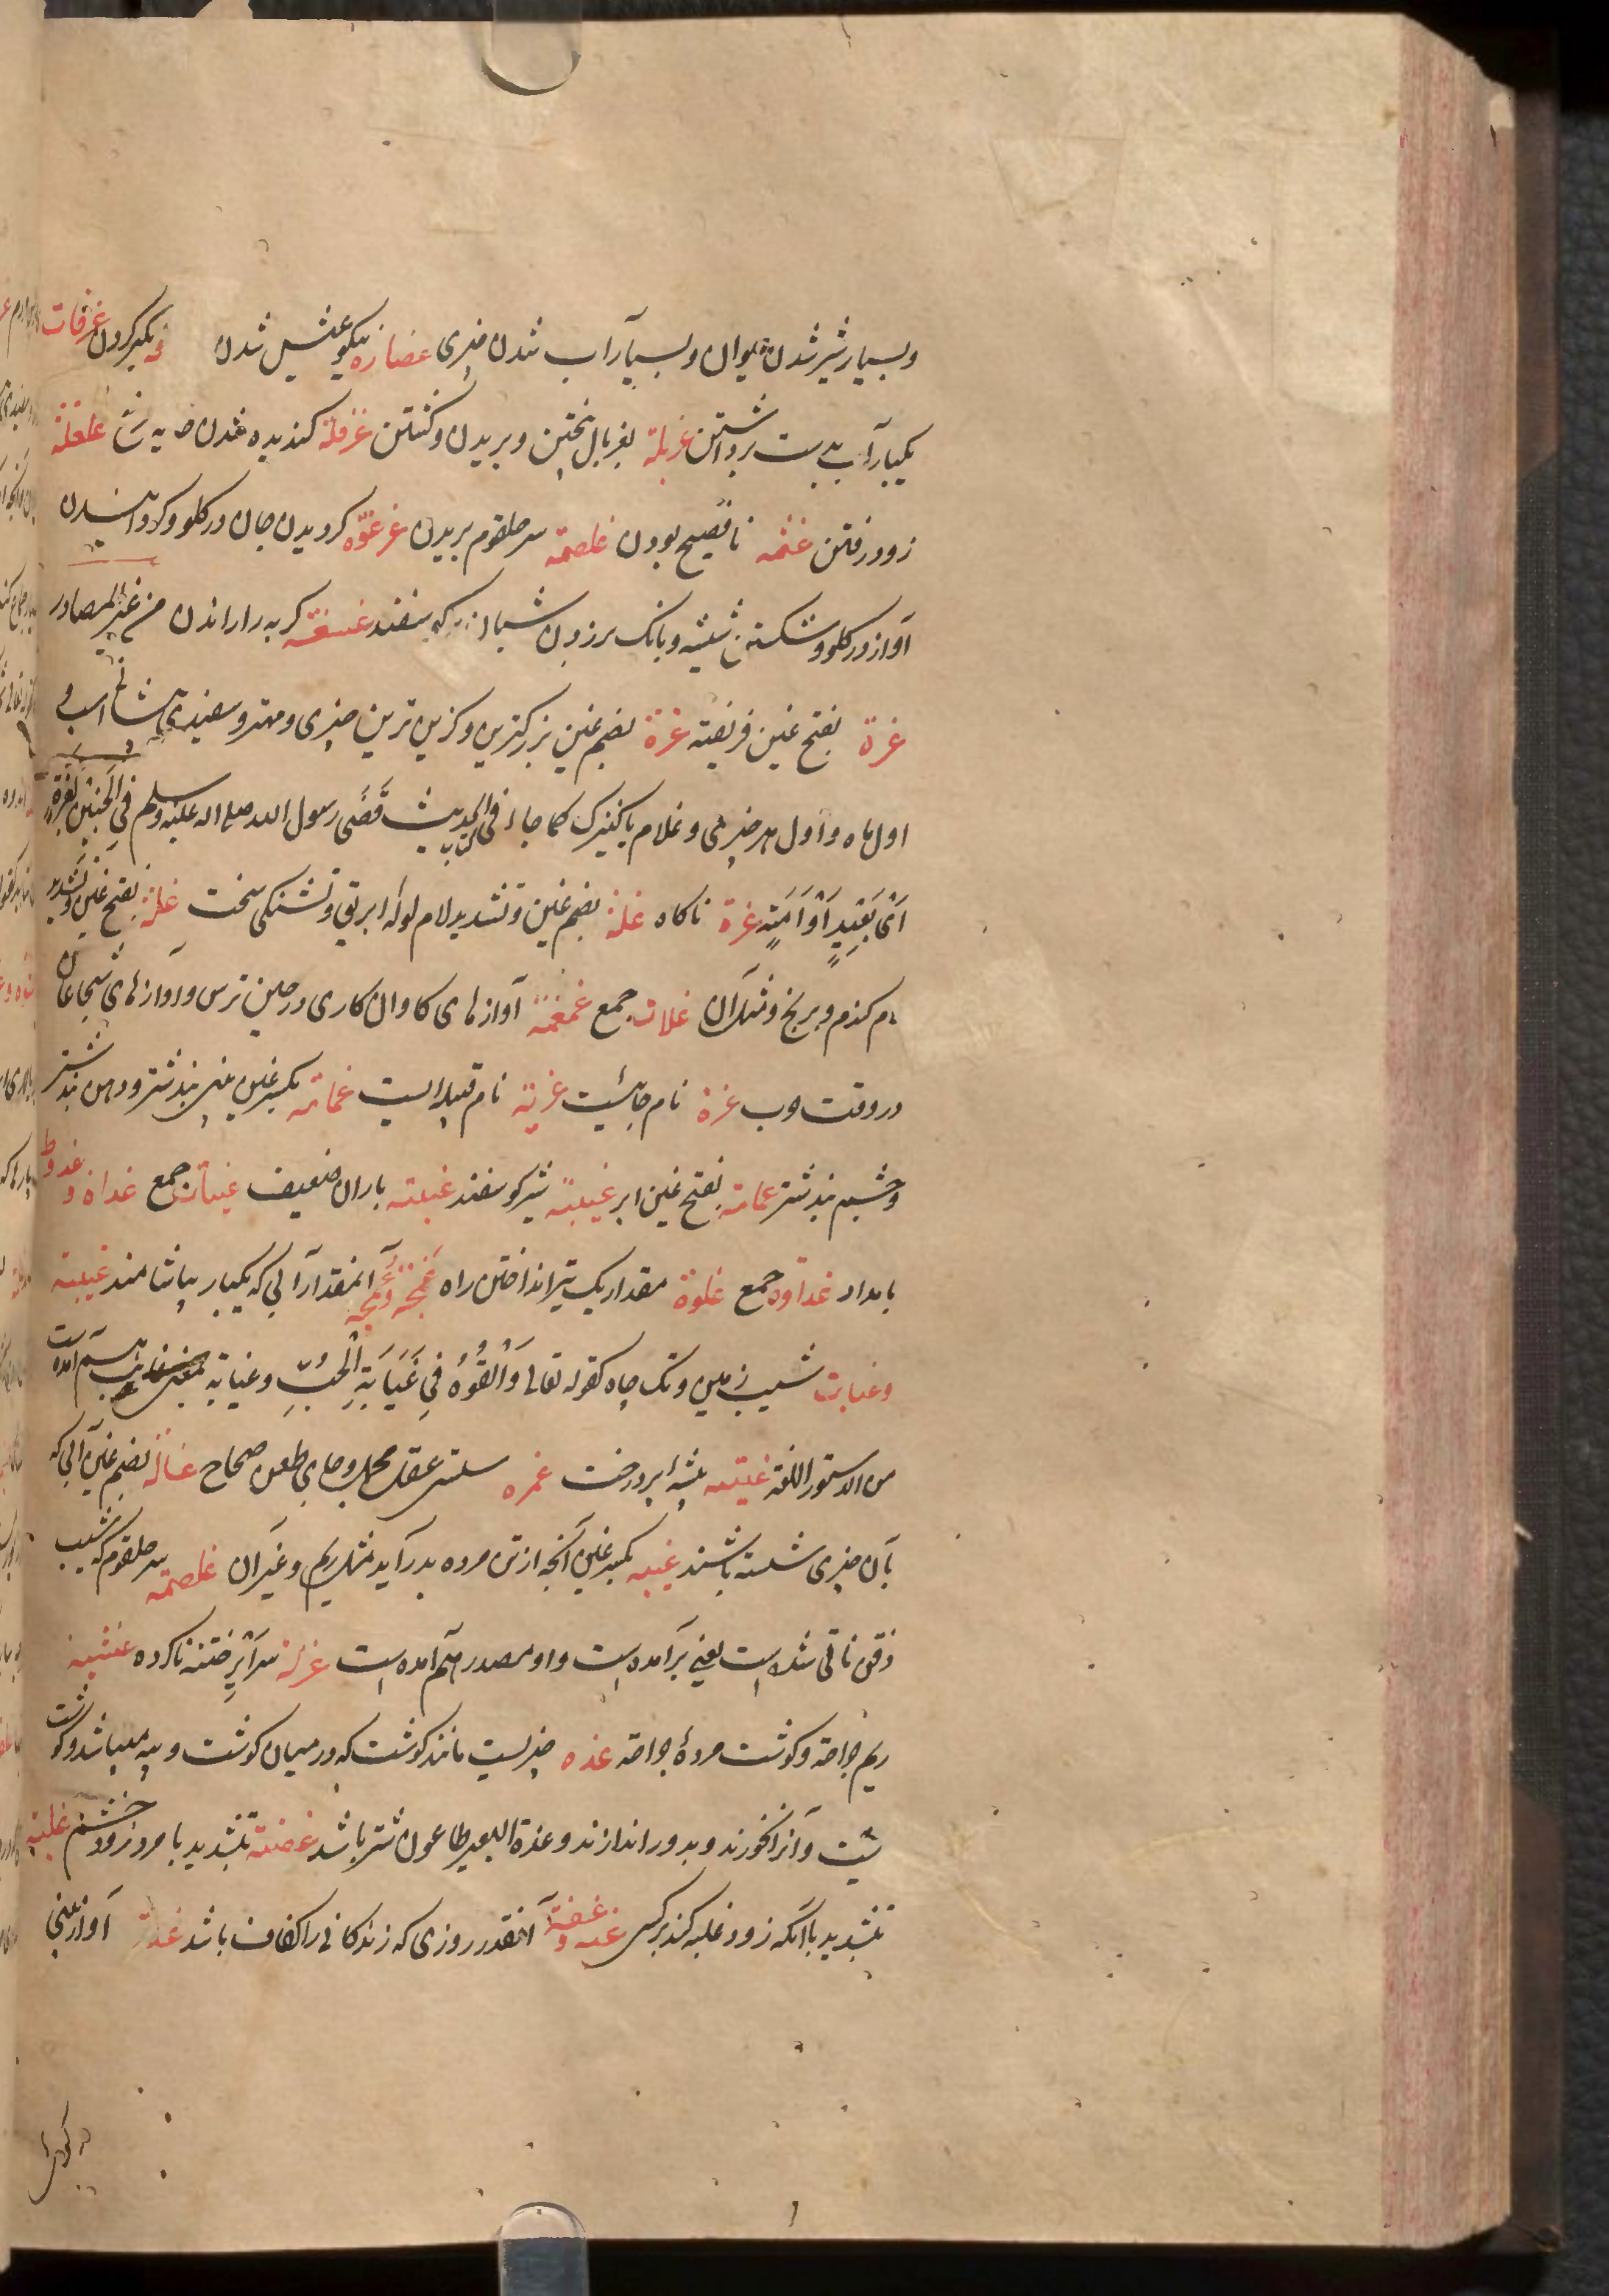 وبسیار شیر شدن حیوان وبسیار آب شدن چیزی غضارة نیکو عیش شدن و بکبر کردن غرفات
یکبار آب بدست برداشتن غربلة بغربال پختن وبریدن وکشتن غرقلة کندیده شدن خایه غلغلة
زود رفتن غثمه نافصیح بودن غلصمة سر حلقوم بریدن غرغره کردیدن جان در کلو وکردانیدن
آواز در کلو وشکستن شیشه وبانک برزدن شبان بر کوسفند کربه را راندن من غیر المصادر
غرة بفتح غین فریفته غرة بضم غین بزرکترین وکزین ترین چیزی ومهتر وسفیدی پیشانی اسب و
اول ماه واول هر چیزی وغلام یا کنیزک کما جاء فی الحدیث قَضَی رسول الله صلی الله علیه وسلم فِی الجَنینِ بغُرّةٍ
اَیْ بَعَبْدٍ اَوْ اَمَتٍه غرة ناکاه غلة بضم غین وتشدید لام لوله ابریق وتشنکی سخت غلة بفتح غین وتشدید
لام کندم وبرنج ومثل آن غلات جمع غمغمة آوازهای کاوان کاری در حین ترس وآوازهای شجاعان
در وقت حرب غزة نام جائیست غزیة نام قبیله ایست غمامة بکسر غین بینی بند شتر ودهن بند شتر
وچشم بند شتر غمامة بفتح غین ابر غیبة شیر کوسفند غبیة باران ضعیف غبیات جمع غداة و غدوة
بامداد غداوة جمع غلوة مقدار یک تیر انداختن راه غَمجة وغُمجة آنمقدار آبی که یکبار بیاشامند غیبة
وغیابت شیب زمین وتک چاه کقوله تعالی وَاَلْقُوْهُ فِی غَیَابَةِ الْجُبِّ وغیابة هم آمده است
من الدستور اللغة بیشه پر درخت غمره سستی عقل صحاح غسالة بضم غین آبی که
بآن چیزی شسته باشند بکسر غین آنچه از تن مرده بدر آید مثل ریم وغیر آن غلصمة سر حلقوم که شیب
ذقن ناتی شده است یعنی برآمده است واو مصدر هم آمده است غرلة سر اَیْرِ ختنه ناکرده غثیثة
ریم جراحة وکوشت مردهٔ جراحة غده چیزیست مانند کوشت که در میان کوشت وپیه میباشد وکوشت
نیست وآنرا نخورند وبدور اندازند وغدة البعیر طاعون شتر باشد غضبة بتشدید با مرد زود خشم غلبة
بتشدید با آنکه زود غلبه کند برکسی غبة و غفة آنقدر روزی که زندکانی را کفاف باشد غنة آواز بینی